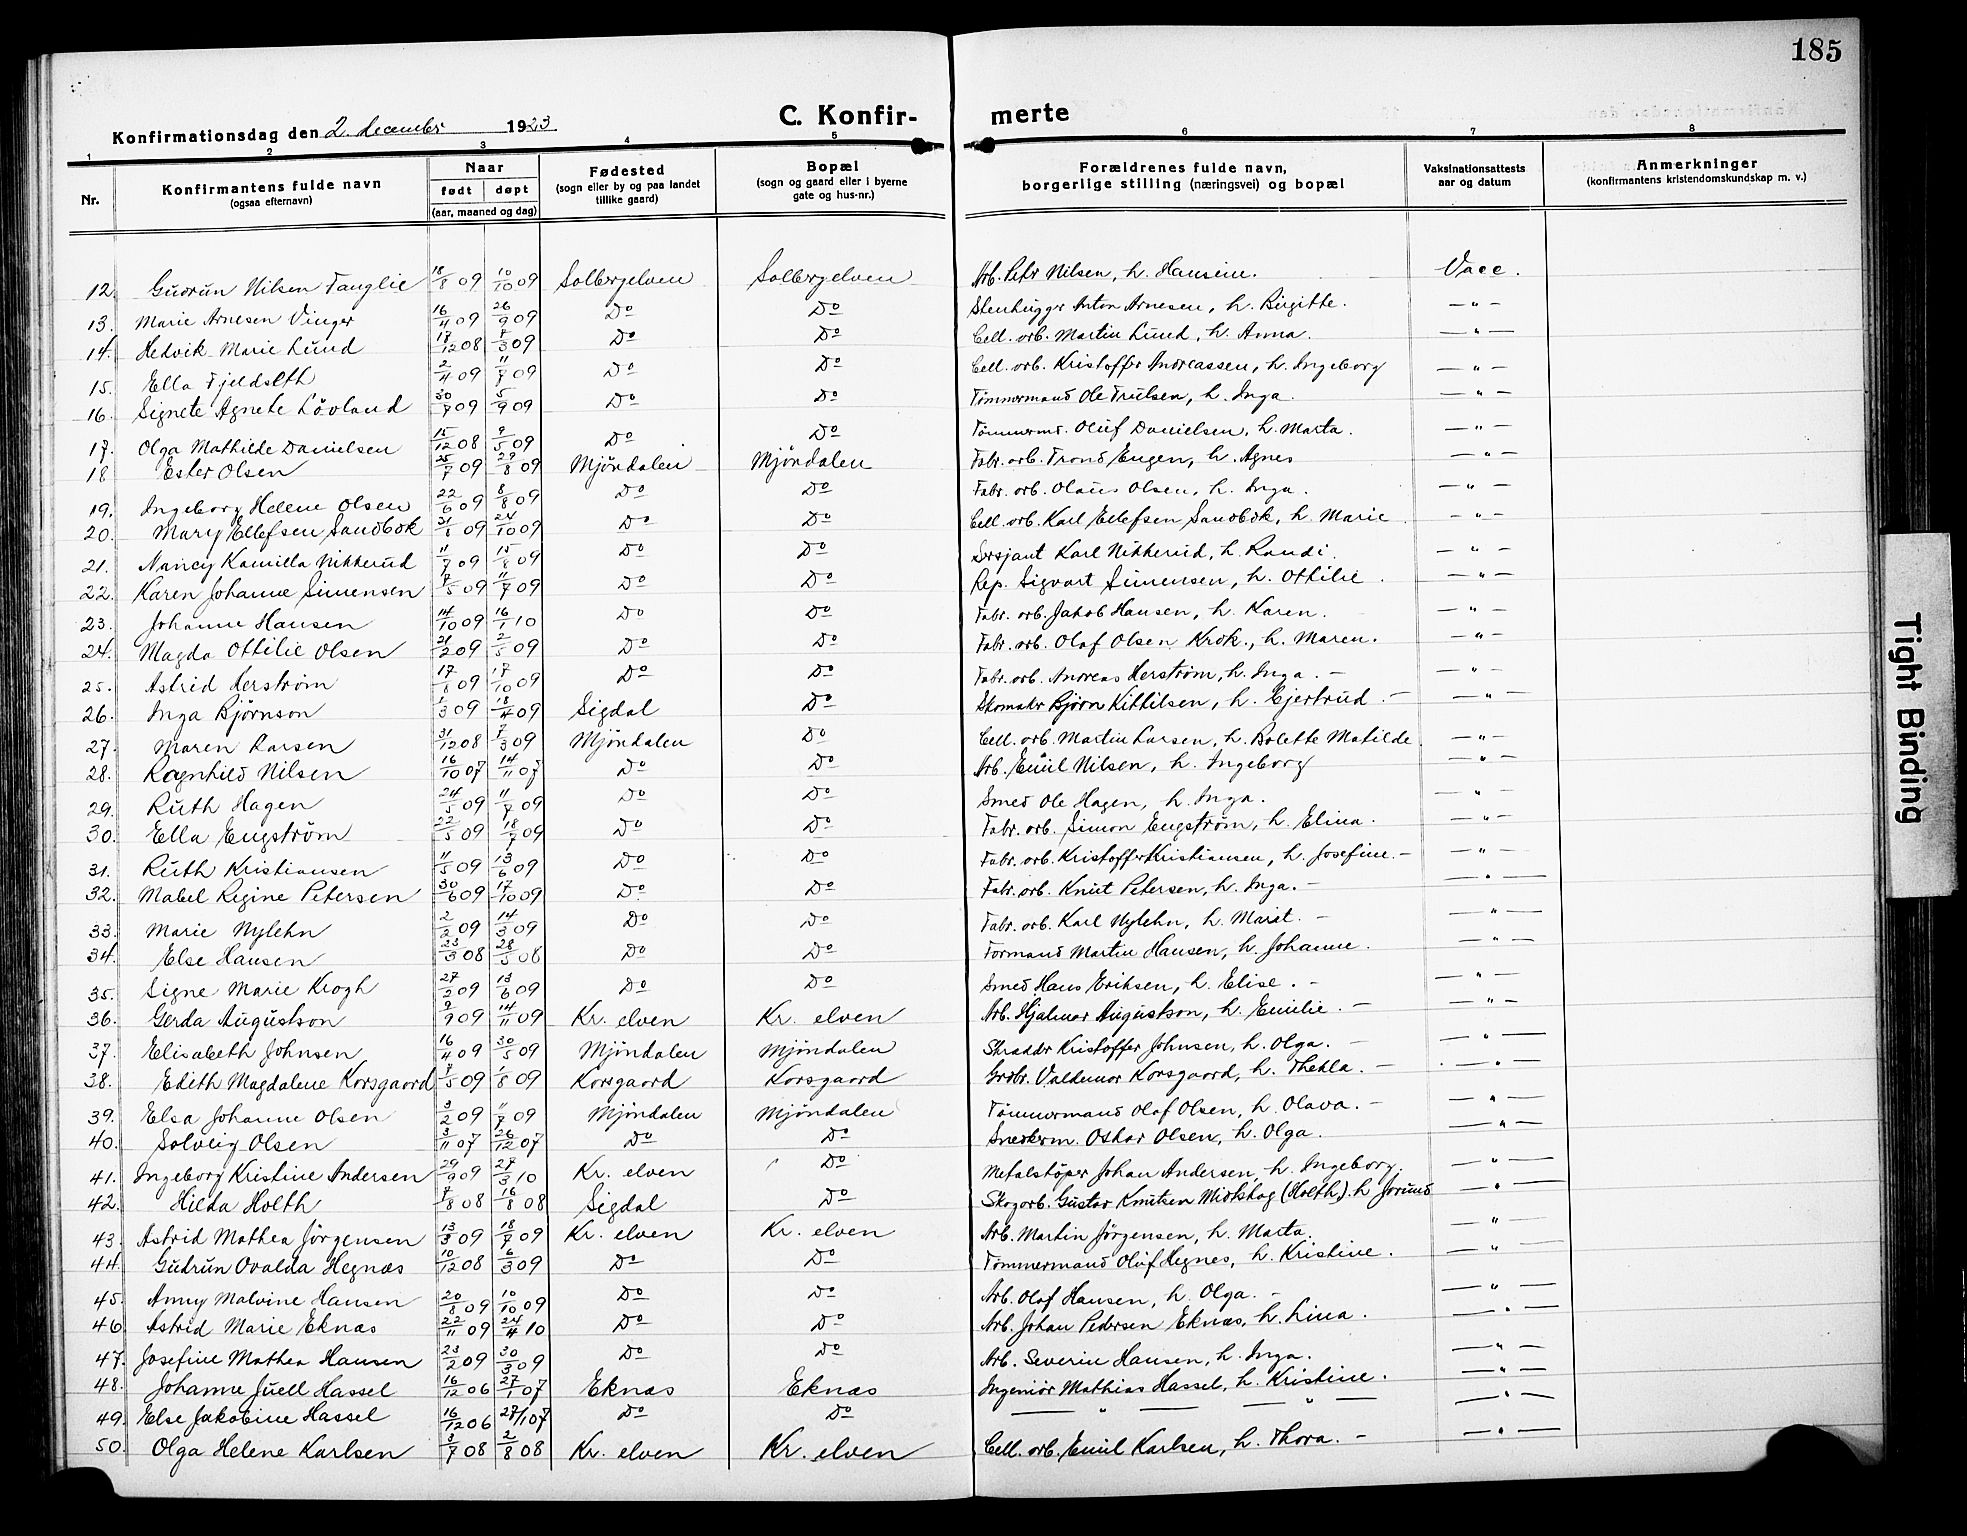 185
C. Konfir- merte
Konfirmationsdag den 2. december 1923
1 2 3 4 5 6 7 8
Nr. Konfirmantens fulde navn (ogsaa efternavn) Naar født døpt (aar, maaned og dag) Fødested (sogn eller by og paa landet tillike gaard) Bopæl (sogn og gaard eller i byerne gate og hus-nr.) Forældrenes fulde navn, borgerlige stilling (næringsvei) og bopæl Vaksinationsattests aar og datum Anmerkninger (konfirmantens kristendomskundskap m. v.)
12. Gudrun Nilsen Fanglie 18/8 09 10/10 09 Solbergelven Solbergelven Arb. Petr Nilsen, h. Hansine. Vacc.
13. Marie Arnesen Vinger 16/4 09 26/9 09 Do Do Stenhugger Anton Arnesen, h. Birgitte. — " —
14. Hedvik Marie Lund 17/12 08 7/3 09 Do Do Cell. arb. Martin Lund, h. Anna. — " —
15. Ella Fjeldseth 2/4 09 11/7 09 Do Do Cell. arb. Kristoffer Andreassen, h. Ingeborg — " —
16. Signete Agnete Lövland 30/7 09 5/9 09 Do Do Tömmermand Ole Trulsen, h. Inga. — " —
17. Olga Mathilde Danielsen 15/12 08 9/5 09 Do Do Tömmermd. Oluf Danielsen, h. Marta. — " —
18 Ester Olsen 25/7 09 29/8 09 Mjöndalen Mjöndalen Fabr. arb. Trond Engen, h. Agnes — " —
19. Ingeborg Helene Olsen 22/6 09 8/8 09 Do Do Fabr. arb. Olaus Olsen, h. Inga. — " —
20. Mary Ellefsen Sandbok 31/8 09 24/10 09 Do Do Cell. arb. Karl Ellefsen Sandbok, h. Marie. — " —
21. Nancy Kamilla Nikkerud 11/7 09 15/8 09 Do Do Sersjant Karl Nikkerud, h. Randi. — " —
22. Karen Johanne Simensen 7/5 09 11/7 09 Do Do Rep. Sigvart Simensen, h. Ottilie. — " —
23. Johanne Hansen 14/10 09 16/1 10 Do Do Fabr. arb. Jakob Hansen, h. Karen. — " —
24. Magda Ottilie Olsen 21/2 09 2/5 09 Do Do Fabr. arb. Olaf Olsen Krok., h. Maren. — " —
25. Astrid Herström 17/8 09 17/10 09 Do Do Fabr. arb. Andreas Herström, h. Inga. — — " —
26. Inga Björnson 1/3 09 18/4 09 Sigdal Do Skomaker Björn Kittilsen, h. Gjertrud. — — " —
27. Maren Larsen 31/12 08 7/3 09 Mjöndalen Do Cell. arb. Martin Larsen, h. Bolette Matilde. — " —
28. Ragnhild Nilsen 16/10 07 14/11 07 Do Do Arb. Emil Nilsen, h. Ingeborg — " —
29. Ruth Hagen 24/5 09 11/7 09 Do Do Smed Ole Hagen, h. Inga. — " —
30. Ella Engström 22/5 09 18/7 09 Do Do Fabr. arb. Simon Engström, h. Elina. — " —
31. Ruth Kristiansen 11/5 09 13/6 09 Do Do Fabr. arb. Kristoffer Kristiansen, h. Josefine. — — " —
32. Mabel Regine Petersen 30/6 09 17/10 09 Do Do Fabr. arb. Knut Petersen, h. Inga. — — " —
33. Marie Nylehn 2/2 09 14/3 09 Do Do Fabr. arb. Karl Nylehn, h. Marit. — — " —
34. Else Hansen 23/3 08 28/5 08 Do Do Formand Martin Hansen, h. Johanne. — " —
35. Signe Marie Krogh 27/2 09 13/6 09 Do Do Smed Hans Eriksen, h. Elise. — — " —
36. Gerda Augustson 9/9 09 14/11 09 Kr. elven Kr. elven Arb. Hjalmar Augustson, h. Emilie. — — " —
37. Elisabeth Johnsen 16/4 09 30/5 09 Mjöndalen Mjöndalen Skrædder Kristoffer Johnsen, h. Olga. — — " —
38. Edith Magdalene Korsgaard 7/5 09 1/8 09 Korsgaard Korsgaard Grdbr. Valdemar Korsgaard, h. Thekla. — — " —
39. Elsa Johanne Olsen 3/2 09 11/7 09 Mjöndalen Mjöndalen Tömmermand Olaf Olsen, h. Olava. — — " —
40. Solveig Olsen 3/11 07 26/12 07 Do Do Snedkerm. Oskar Olsen, h. Olga. — " —
41. Ingeborg Kristine Andersen 29/9 09 27/3 10 Kr. elven Do Metalstöper Johan Andersen, h. Ingeborg. — " —
42. Hilda Holth 7/8 08 16/8 08 Sigdal Do Skogarb. Gustav Knutsen Midtskog (Holth). h Jorund — " —
43. Astrid Mathea Jörgensen 13/3 09 18/7 09 Kr. elven Kr. elven Arb. Martin Jörgensen, h. Marta. — " —
44. Gudrun Ovalda Hegnæs 10/12 08 6/3 09 Do Do Tömmermand Oluf Hegnes, h. Kristine. — " —
45. Anny Malvine Hansen 20/8 09 10/10 09 Do Do Arb. Olaf Hansen, h. Olga. — — " —
46 Astrid Marie Eknæs 22/11 09 24/4 10 Do Do Arb. Johan Pedersen Eknæs, h. Lina. — " —
47. Josefine Mathea Hansen 23/2 09 30/3 09 Do Do Arb. Severin Hansen, h. Inga. — " —
48. Johanne Juell Hassel 16/12 06 27/1 07 Eknæs Eknæs Ingeniör Mathias Hassel, h. Kristine. — " —
49. Else Jakobine Hassel 16/12 06 27/1 07 Do Do — " — " — — " —
50. Olga Helene Karlsen 3/7 08 2/8 08 Kr. elven Kr. elven Cell. arb. Emil Karlsen, h. Thora. — — " —
Tight Binding